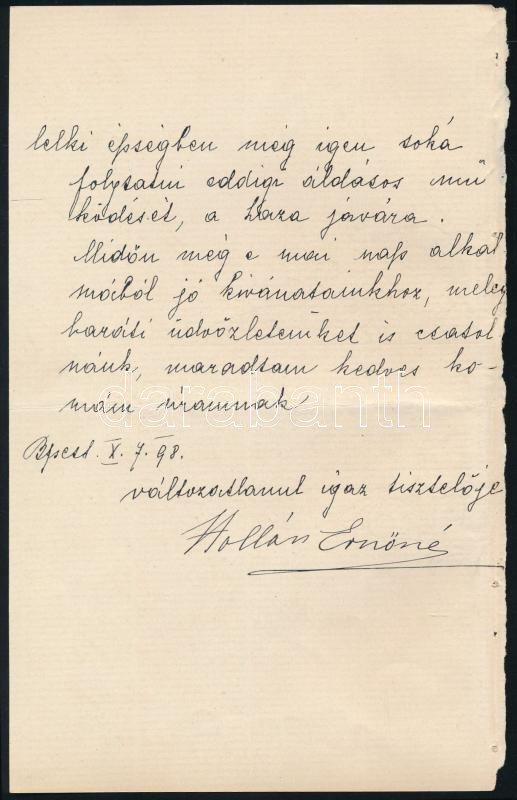 lelki épségben még igen soká
folytatni eddigi áldásos mű
ködését, a haza jávára.
Midőn még e mai nap alkal
mából jó kivánatainkhoz, meleg
baráti üdvözleteinket is csatol
nánk, maradtam kedves ko-
mám uramnak
darabanth
Bpest. X. 7. 98.
változatlanul igaz tisztelője
Hollán Ernőné